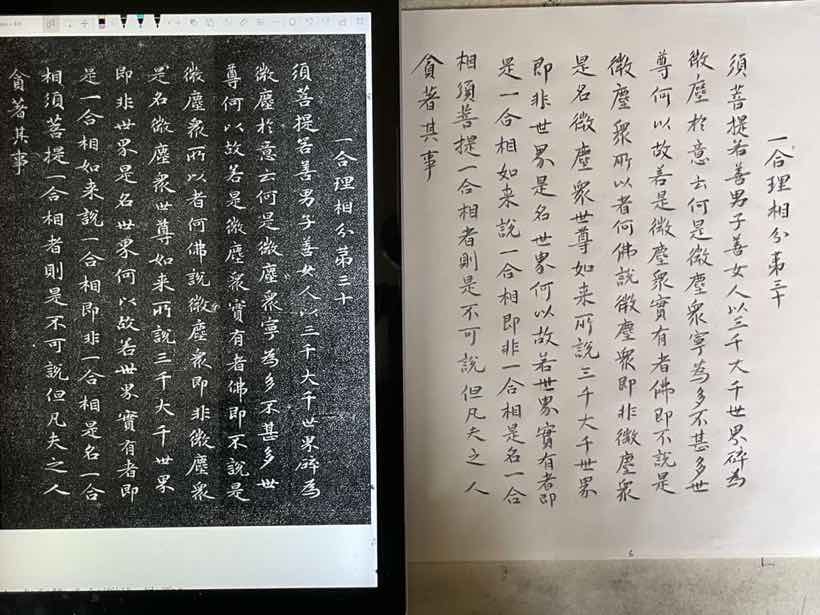 一合理相分第三十
須菩提若善男子善女人以三千大千世界碎為
微塵於意云何是微塵衆寧為多不甚多世
尊何以故若是微塵衆實有者佛即不說是
微塵衆所以者何佛說微塵衆即非微塵衆
是名微塵衆世尊如来所說三千大千世界
即非世界是名世界何以故若世界實有者即
是一合相如来說一合相即非一合相是名一合
相須菩提一合相者則是不可說但凡夫之人
貪著其事
一合理相分第三十
須菩提若善男子善女人以三千大千世界碎為
微塵於意云何是微塵衆寧為多不甚多世
尊何以故若是微塵衆實有者佛即不說是
微塵衆所以者何佛說微塵衆即非微塵衆
是名微塵衆世尊如来所說三千大千世界
即非世界是名世界何以故若世界實有者即
是一合相如来說一合相即非一合相是名一合
相須菩提一合相者則是不可說但凡夫之人
貪著其事